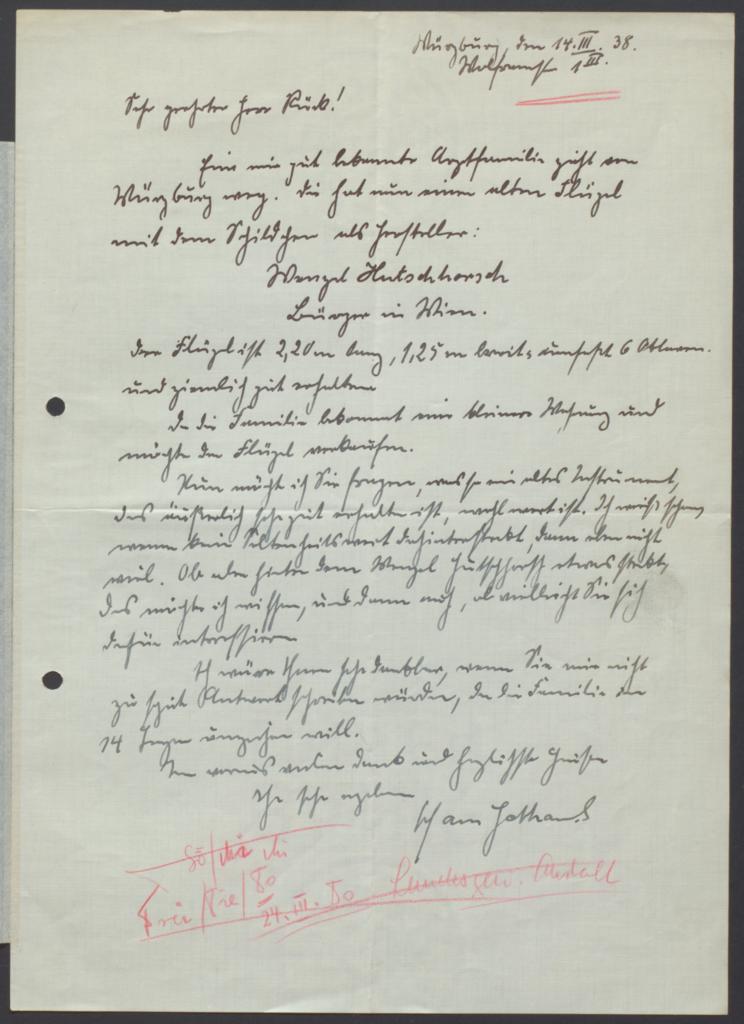 Würzburg, den 14. III. 38.
Wolframstr. 1 III.
Sehr geehrter Herr Rück!
Eine mir gut bekannte Arztfamilie zieht von
Würzburg weg. Die hat nun einen alten Flügel
mit dem Schildchen als Hersteller:
Wenzel Hutschhorsch
Bürger in Wien.
Der Flügel ist 2,20 m lang, 1,25 m breit, umfaßt 6 Oktaven.
und ziemlich gut erhalten
Da die Familie bekommt eine kleinere Wohnung und
möchte den Flügel verkaufen.
Nun möcht ich Sie fragen, was so ein altes Instrument,
das äußerlich sehr gut erhalten ist, wohl wert ist. Ich weiß schon,
wenn kein Seltenheitswert dahintersteckt, dann eben nicht
viel. Ob aber hinter dem Wenzel Hutschhorsch etwas steckt,
das möchte ich wissen, und dann auch, ob vielleicht Sie sich
dafür interessieren
Ich wäre Ihnen sehr dankbar, wenn Sie mir nicht
zu spät Antwort schreiben würden, da die Familie in
14 Tagen umziehen will.
Im voraus vielen Dank und herzlichste Grüße
Ihr sehr ergebener
24. III.